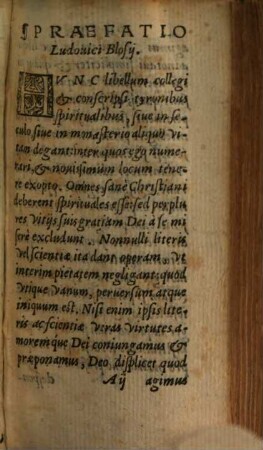 PRAEFATIO
Ludouici Blosij.
HVNC libellum collegi
& conscripsi tyronibus
spiritualibus, siue in se-
culo siue in monasterio aliquo vi-
tam degant: inter quos ego nume-
rari, & nouissimum locum tene-
re exopto. Omnes sanè Christiani
deberent spirituales esse: sed per plu-
res vitijs suis gratiam Dei à se mi-
serè excludunt. Nonnulli literis
vel scientiæ ita dant operam, vt
interim pietatem negligant: quod
vtique vanum, peruersum atque
iniquum est. Nisi enim ipsis lite-
ris ac scientiæ veras virtutes a-
moremque Dei coniungamus &
præponamus, Deo displicet quod
A ij agimus